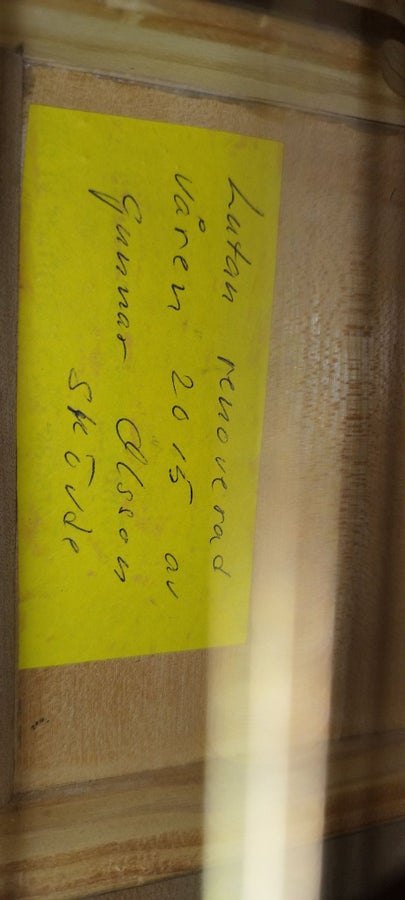 Lutan renoverad
våren 2015 av
Gunnar Olsson
Skövde